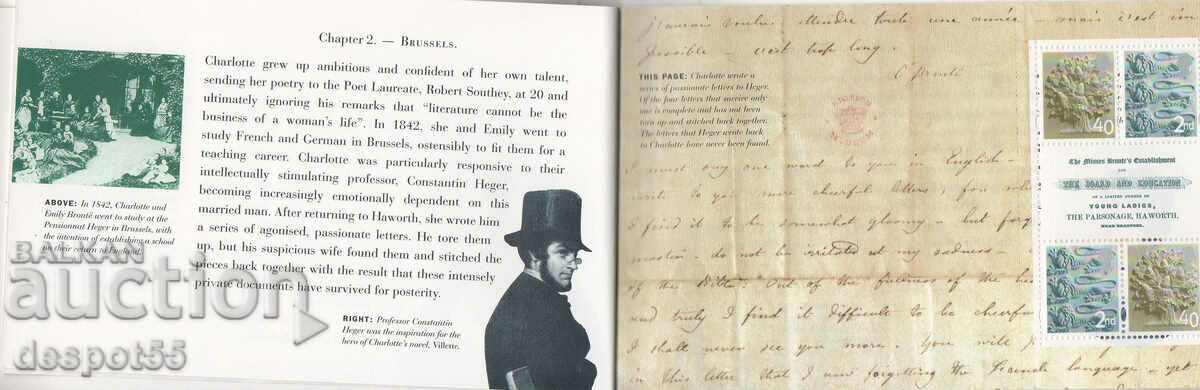 Chapter 2. — BRUSSELS.
Charlotte grew up ambitious and confident of her own talent,
sending her poetry to the Poet Laureate, Robert Southey, at 20 and
ultimately ignoring his remarks that "literature cannot be the
business of a woman's life". In 1842, she and Emily went to
study French and German in Brussels, ostensibly to fit them for a
teaching career. Charlotte was particularly responsive to their
intellectually stimulating professor, Constantin Heger,
becoming increasingly emotionally dependent on this
married man. After returning to Haworth, she wrote him
a series of agonised, passionate letters. He tore them
up, but his suspicious wife found them and stitched the
pieces back together with the result that these intensely
private documents have survived for posterity.
ABOVE: In 1842, Charlotte and
Emily Brontë went to study at the
Pensionnat Heger in Brussels, with
the intention of establishing a school
on their return to England.
RIGHT: Professor Constantin
Heger was the inspiration for the
hero of Charlotte's novel, Villette.
BALKAN
auction
despot55
toute une année – mais c'est im
possible – c'est trop long.
C Brontë
THIS PAGE: Charlotte wrote a
series of passionate letters to Heger.
Of the four letters that survive only
one is complete and has not been
torn up and stitched back together.
The letters that Heger wrote back
to Charlotte have never been found.
I must say one word to you in English –
write to you more cheerful letters, for
I find it to be somewhat gloomy – but
master, do not be irritated at my sadness –
of the out of the fulness of the
and truly I find it difficult to be cheerful
I shall never see you more. You will
in this letter that I am forgetting the French language – yet
40
2nd
The Misses Brontë's Establishment
FOR
THE BOARD AND EDUCATION
OF A LIMITED NUMBER OF
YOUNG LADIES,
THE PARSONAGE, HAWORTH,
NEAR BRADFORD.
2nd
40